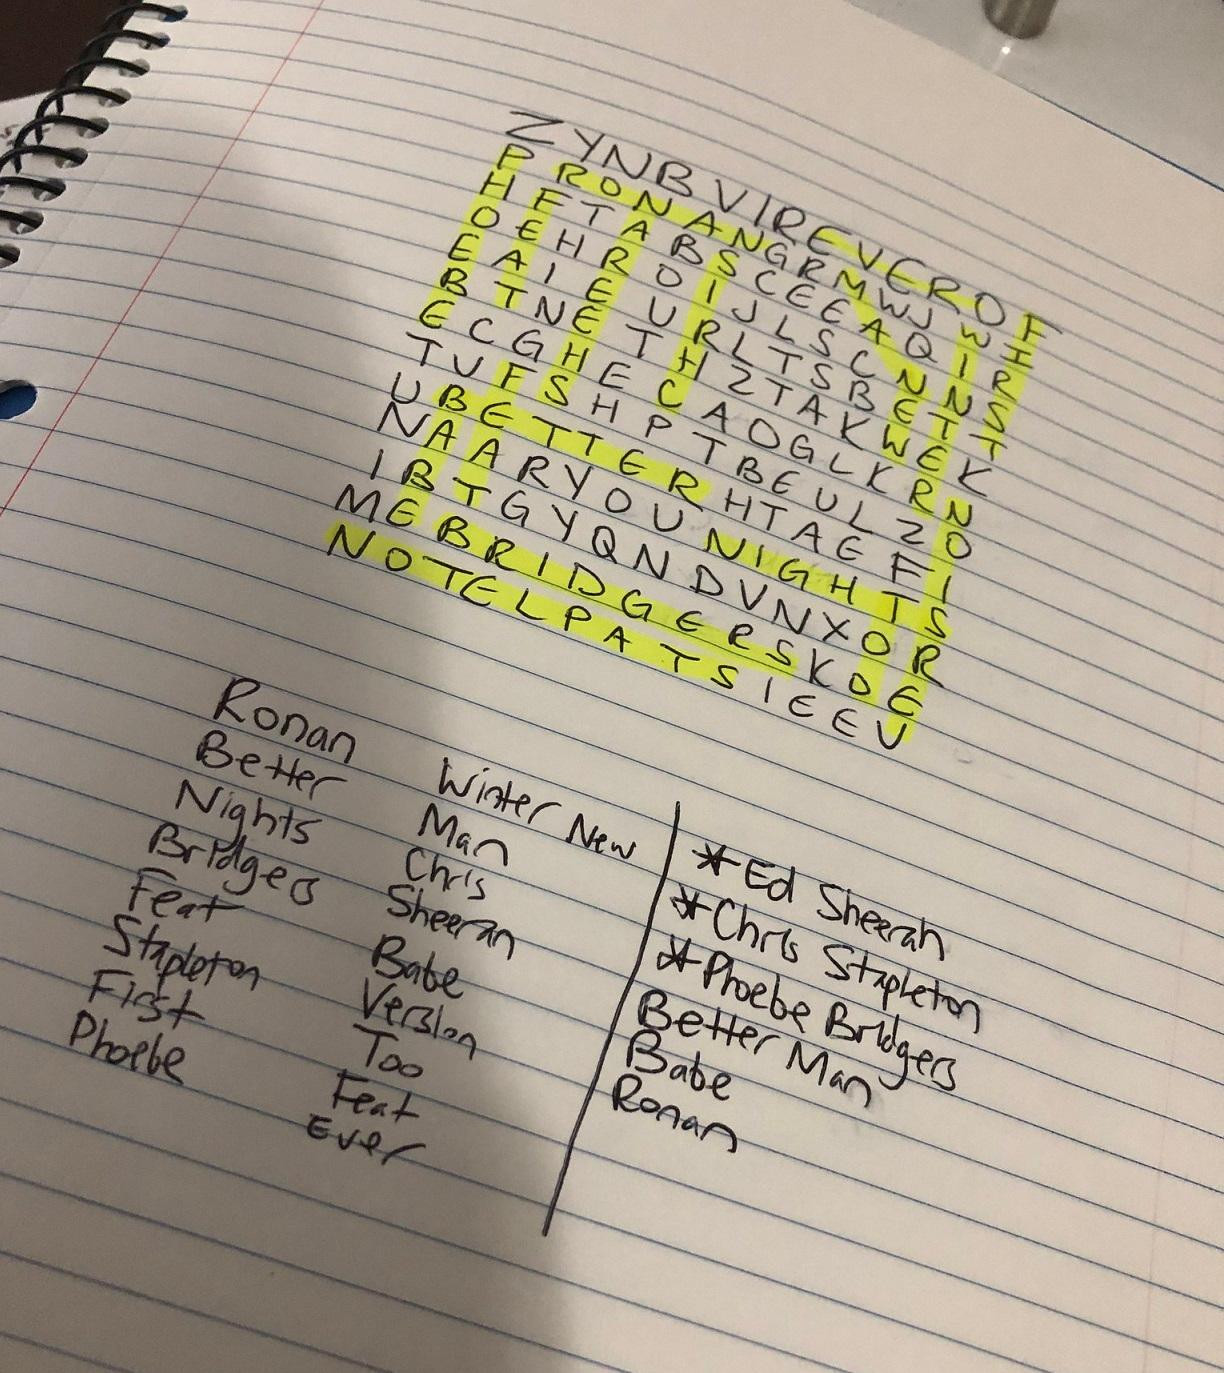 ZYNBVIREVEROF
PRONANGRMWJWI
HFTABSCEEAQIR
OEHROIJLSCNNS
EAIEURLTSBETT
BTNETHZTAKWEK
ECGHECAOGLKRN
TUFSHPTBEULZO
UBETTERHTAEFI
NAARYOUNIGHTS
IBTGYQNDVNXOR
MEBRIDGERSKOE
NOTELPATSIEEV
Ronan
Better
Nights
Bridgers
Feat
Stapleton
First
Phoebe
Winter New
Man
Chris
Sheeran
Babe
Version
Too
Feat
Ever
*Ed Sheeran
*Chris Stapleton
*Phoebe Bridgers
Better Man
Babe
Ronan